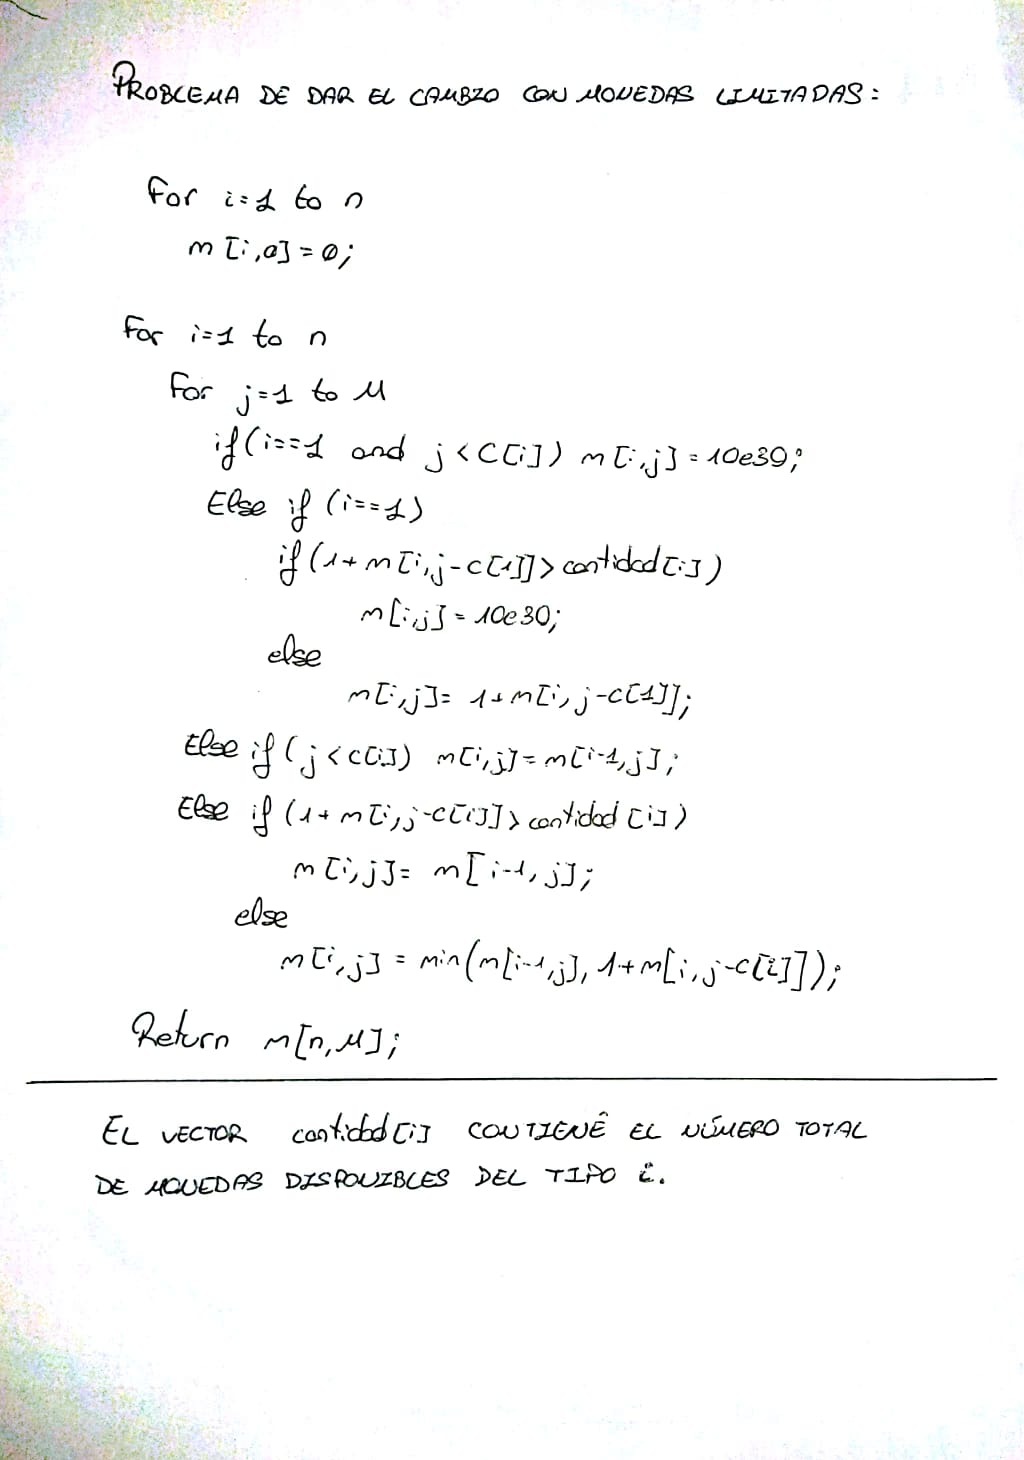 PROBLEMA DE DAR EL CAMBIO CON MONEDAS LIMITADAS:
For i=1 to n
m[i,0]=0;
For i=1 to n
For j=1 to M
if(i==1 and j<C[i]) m[i,j]=10e30;
Else if (i==1)
if(1+m[i,j-c[1]]>cantidad[i])
m[i,j]=10e30;
else
m[i,j]= 1+m[i,j-c[1]];
Else if(j<c[i]) m[i,j]=m[i-1,j];
Else if(1+m[i,j-c[i]]>cantidad[i])
m[i,j]= m[i-1,j];
else
m[i,j] = min(m[i-1,j], 1+m[i,j-c[i]]);
Return m[n,M];
EL VECTOR cantidad[i] CONTIENE EL NÚMERO TOTAL
DE MONEDAS DISPONIBLES DEL TIPO i.